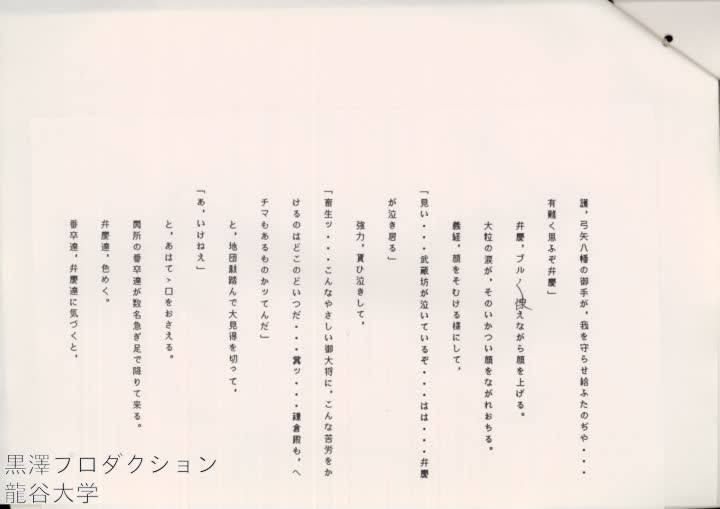 護，弓矢八幡の御手が，我を守らせ給ふたのぢや・・・
有難く思ふぞ弁慶」
弁慶，ブル〳〵慄えながら顔を上げる。
大粒の涙が，そのいかつい顔をながれおちる。
義経，顔をそむける様にして，
「見い・・・武蔵坊が泣いているぞ・・・はは・・・弁慶
が泣き居る」
強力，貰ひ泣きして，
「畜生ッ・・・こんなやさしい御大将に，こんな苦労をか
けるのはどこのどいつだ・・・糞ッ・・・鎌倉殿も，ヘ
チマもあるものかッてんだ」
と，地団駄踏んで大見得を切って，
「あ，いけねえ」
と，あはてゝ口をおさえる。
関所の番卒達が数名急ぎ足で降りて来る。
弁慶達，色めく。
番卒達，弁慶達に気づくと，
黒澤プロダクション
龍谷大学